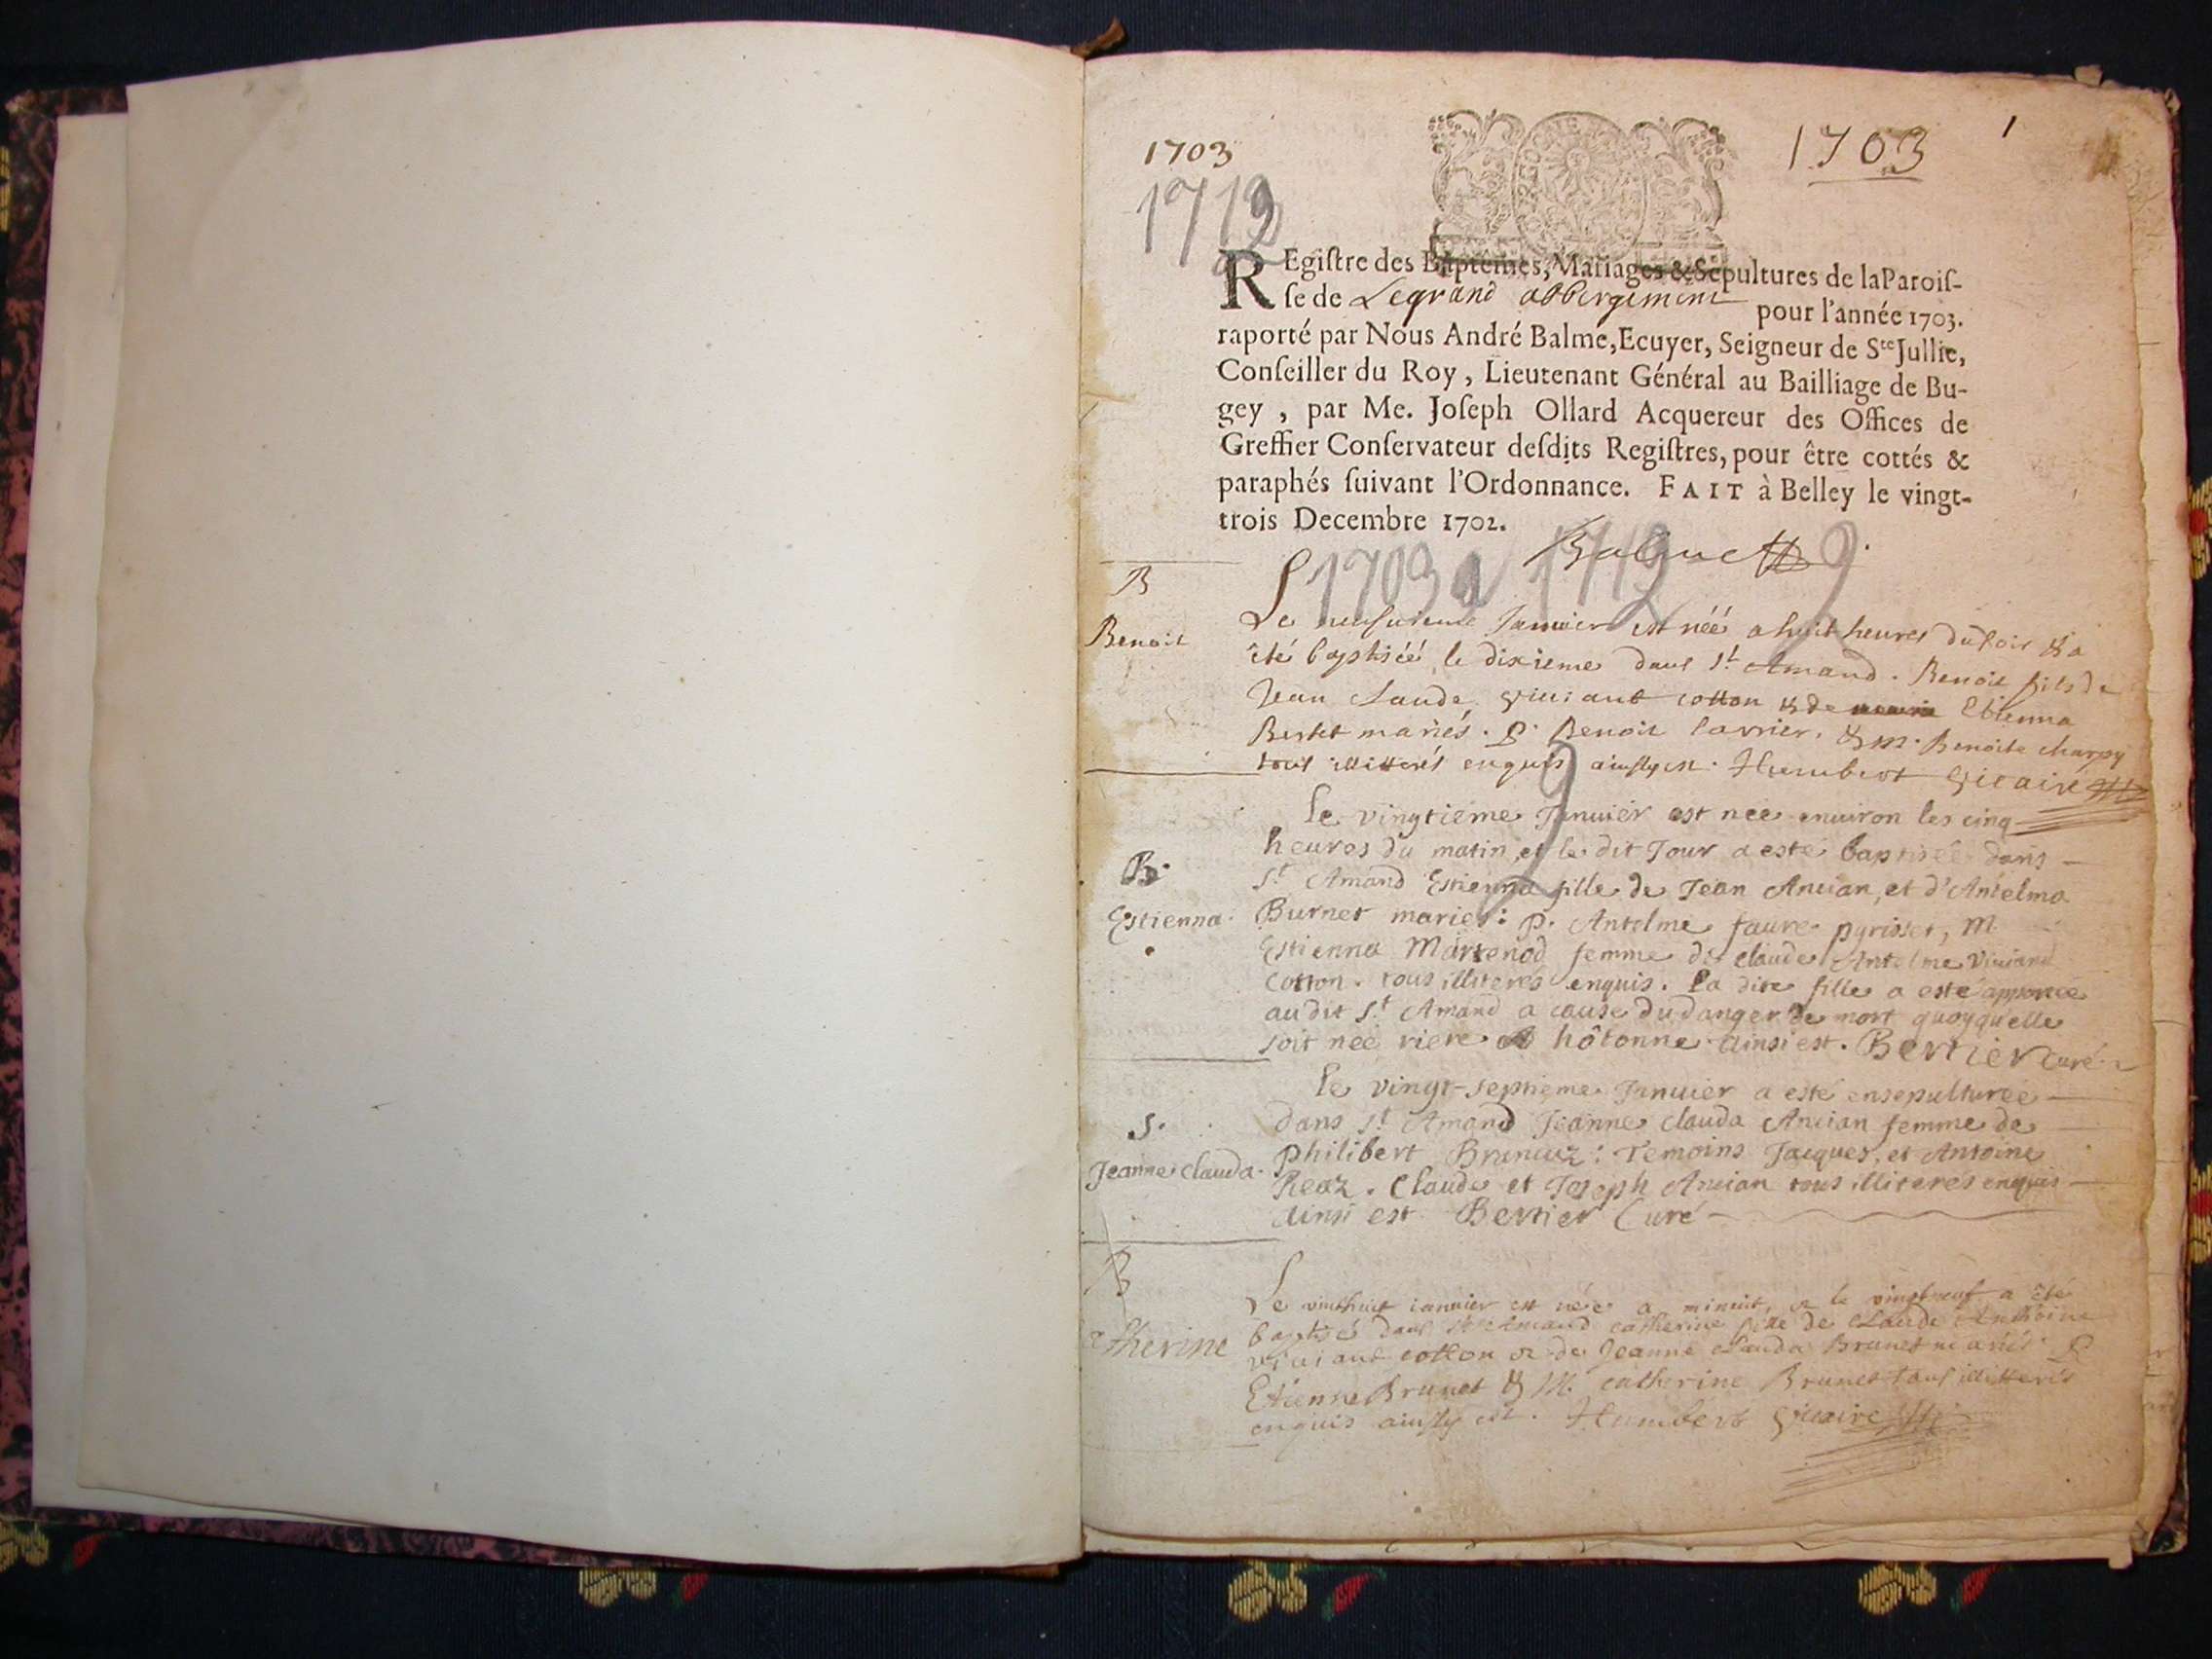 1703
1703
1
1712
REgiſtre des Baptêmes, Mariages & Sepultures de la Paroiſ-
ſe de Legrand abbergement pour l'année 1703.
raporté par Nous André Balme, Ecuyer, Seigneur de Ste Jullie,
Conſeiller du Roy, Lieutenant Général au Bailliage de Bu-
gey, par Me. Joſeph Ollard Acquereur des Offices de
Greffier Conſervateur deſdits Regiſtres, pour être cottés &
paraphés ſuivant l'Ordonnance. FAIT à Belley le vingt-
trois Decembre 1702.
1703 à 1712
B
Benoit
Le neufuieme Januier est néé a huit heures du soir & a
été baptiséé le dixieme dans St Amand. Benoit fils de
Jean Claude Viuiant cotton & de Etienna
Bertet mariés. P. Benoit & M. Benoite charpy
tous illitterés enquis ainsy est. Humbert Vicaire
B.
Estienna.
Le vingtieme Januier est née enuiron les cinq
heures du matin, et le dit Jour a esté baptisée dans
St Amand Estienna fille de Jean Ancian, et d'Antelma
Burnet mariés: p. Antelme faure pyrisset, M
Estienna Martenod femme de claude Antelme Viuiand
Cotton. tous illiterés enquis. La dite fille a esté apportée
audit St Amand a cause du danger de mort quoyqu'elle
soit née riere hôtonne. ainsi est. Bertier curé.
S.
Jeanne clauda.
Le vingt-septieme Januier a esté ensepulturée
dans St Amand Jeanne clauda Ancian femme de
philibert Temoins Jacques, et Antoine
Reaz. Claude et Joseph Ancian tous illiterés enquis
ainsi est Bertier Curé
B
atherine
Le vinthuit ianuier est née a minuit, & le vingtneuf a été
baptisé dans St Amand catherine fille de claude Anthoine
viuiant cotton & de Jeanne clauda Brunet mariés. P
Etienne Brunet & M. catherine Brunet tous illitterés
enquis ainsy est. Humbert Vicaire